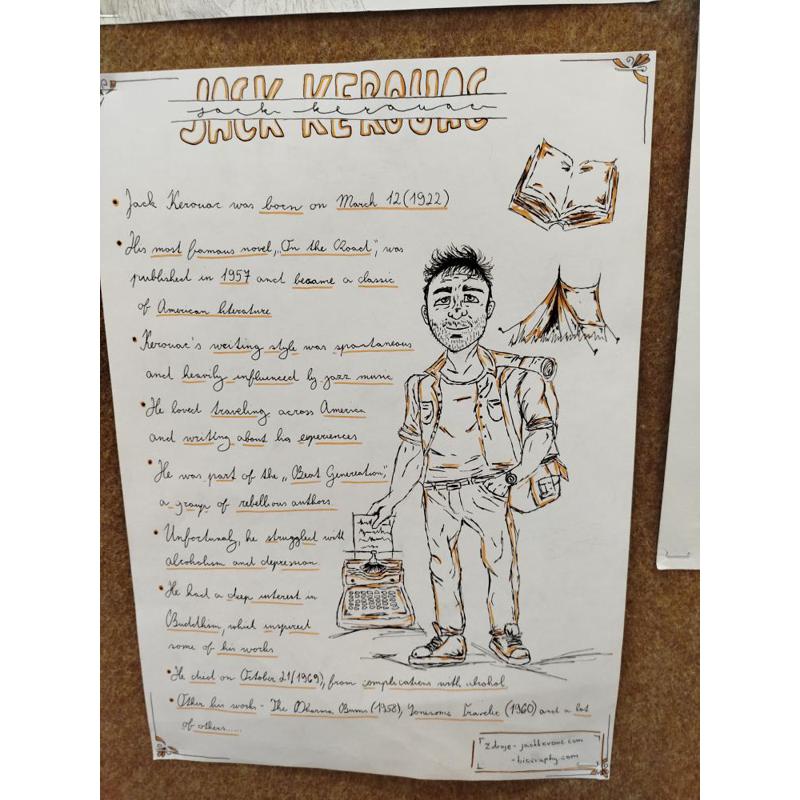 JACK KEROUAC
jack kerouac
Jack Kerouac was born on March 12 (1922)
His most famous novel, „On the Road“, was
published in 1957 and became a classic
of American literature
Kerouac's writing style was spontaneous
and heavily influenced by jazz music
He loved traveling across America
and writing about his experiences
He was part of the „Beat Genereation“,
a group of rebellious authors
Unfortunaly, he struggled with
alcoholism and depression
He had a deep interest in
Buddhism, which inspired
some of his works
He died on October 21 (1969), from complications with alcohol
Other his work - The Dharma Bums (1958), Lonesome Traveler (1960) and a lot
of others.....
Zdroje - jackkerouac.com
- biography.com